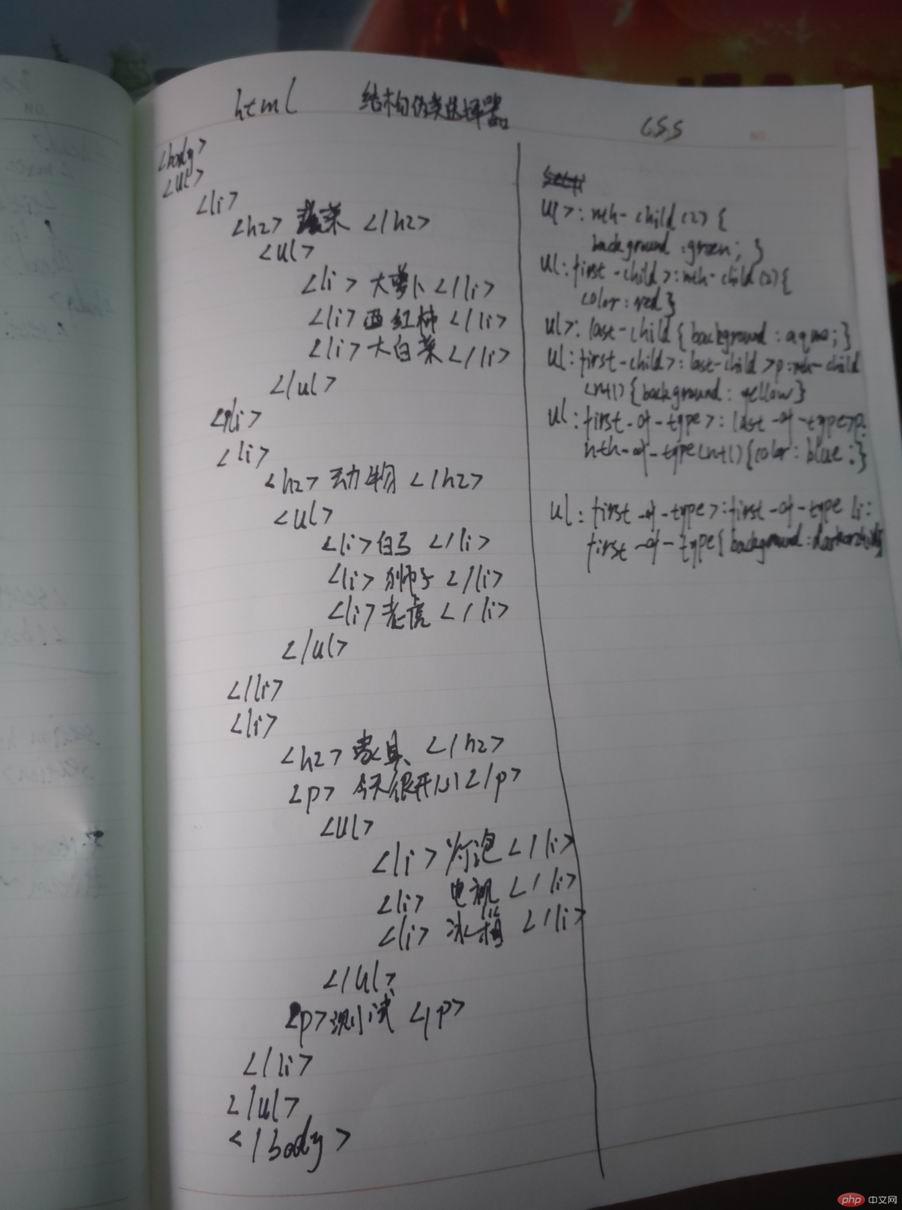 html 结构伪类选择器
<body>
<ul>
<li>
<h2> 蔬菜 </h2>
<ul>
<li> 大萝卜 </li>
<li> 西红柿 </li>
<li> 大白菜 </li>
</ul>
</li>
<li>
<h2> 动物 </h2>
<ul>
<li> 白马 </li>
<li> 狮子 </li>
<li> 老虎 </li>
</ul>
</li>
<li>
<h2> 家具 </h2>
<p> 今天很开心 </p>
<ul>
<li> 灯泡 </li>
<li> 电视 </li>
<li> 冰箱 </li>
</ul>
<p> 测试 </p>
</li>
</ul>
</body>
CSS
ul>:nth-child(2) {
background:green; }
ul:first-child>:nth-child(2){
color:red }
ul>:last-child{background:aqua;}
ul:first-child>:last-child>p:nth-child
(n+1){background:yellow}
ul:first-of-type>:last-of-type>p:
nth-of-type(n+1){color:blue;}
ul:first-of-type>:first-of-type li:
first-of-type{background:
php 中文网